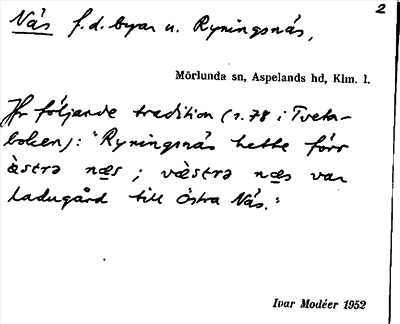 2
Näs f.d. byar u. Ryningsnäs,
Mörlunda sn, Aspelands hd, Klm. l.
Jfr följande tradition (s. 78 i Tveta-
boken): "Ryningsnäs hette förr
ästrə næs; væstrə næs var
ladugård till Östra Näs."
Ivar Modéer 1952